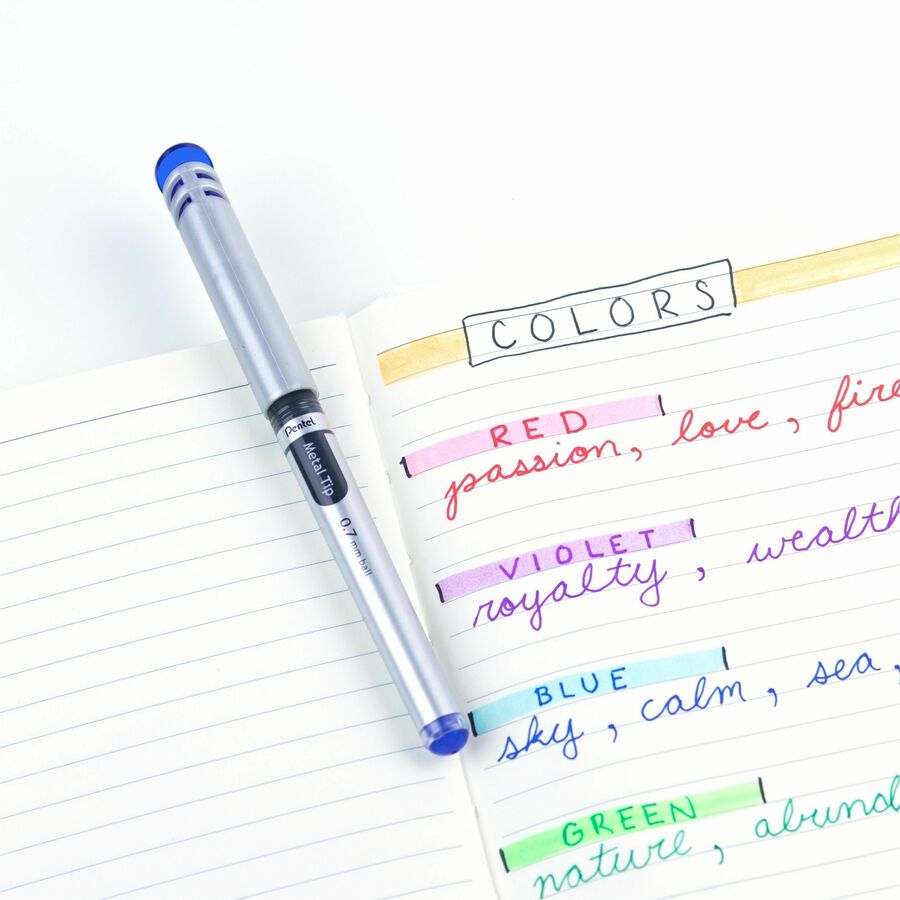 Pentel
Metal Tip
0.7 mm ball
COLORS
RED
passion, love, fire
VIOLET
royalty, wealth
BLUE
sky, calm, sea,
GREEN
nature, abund